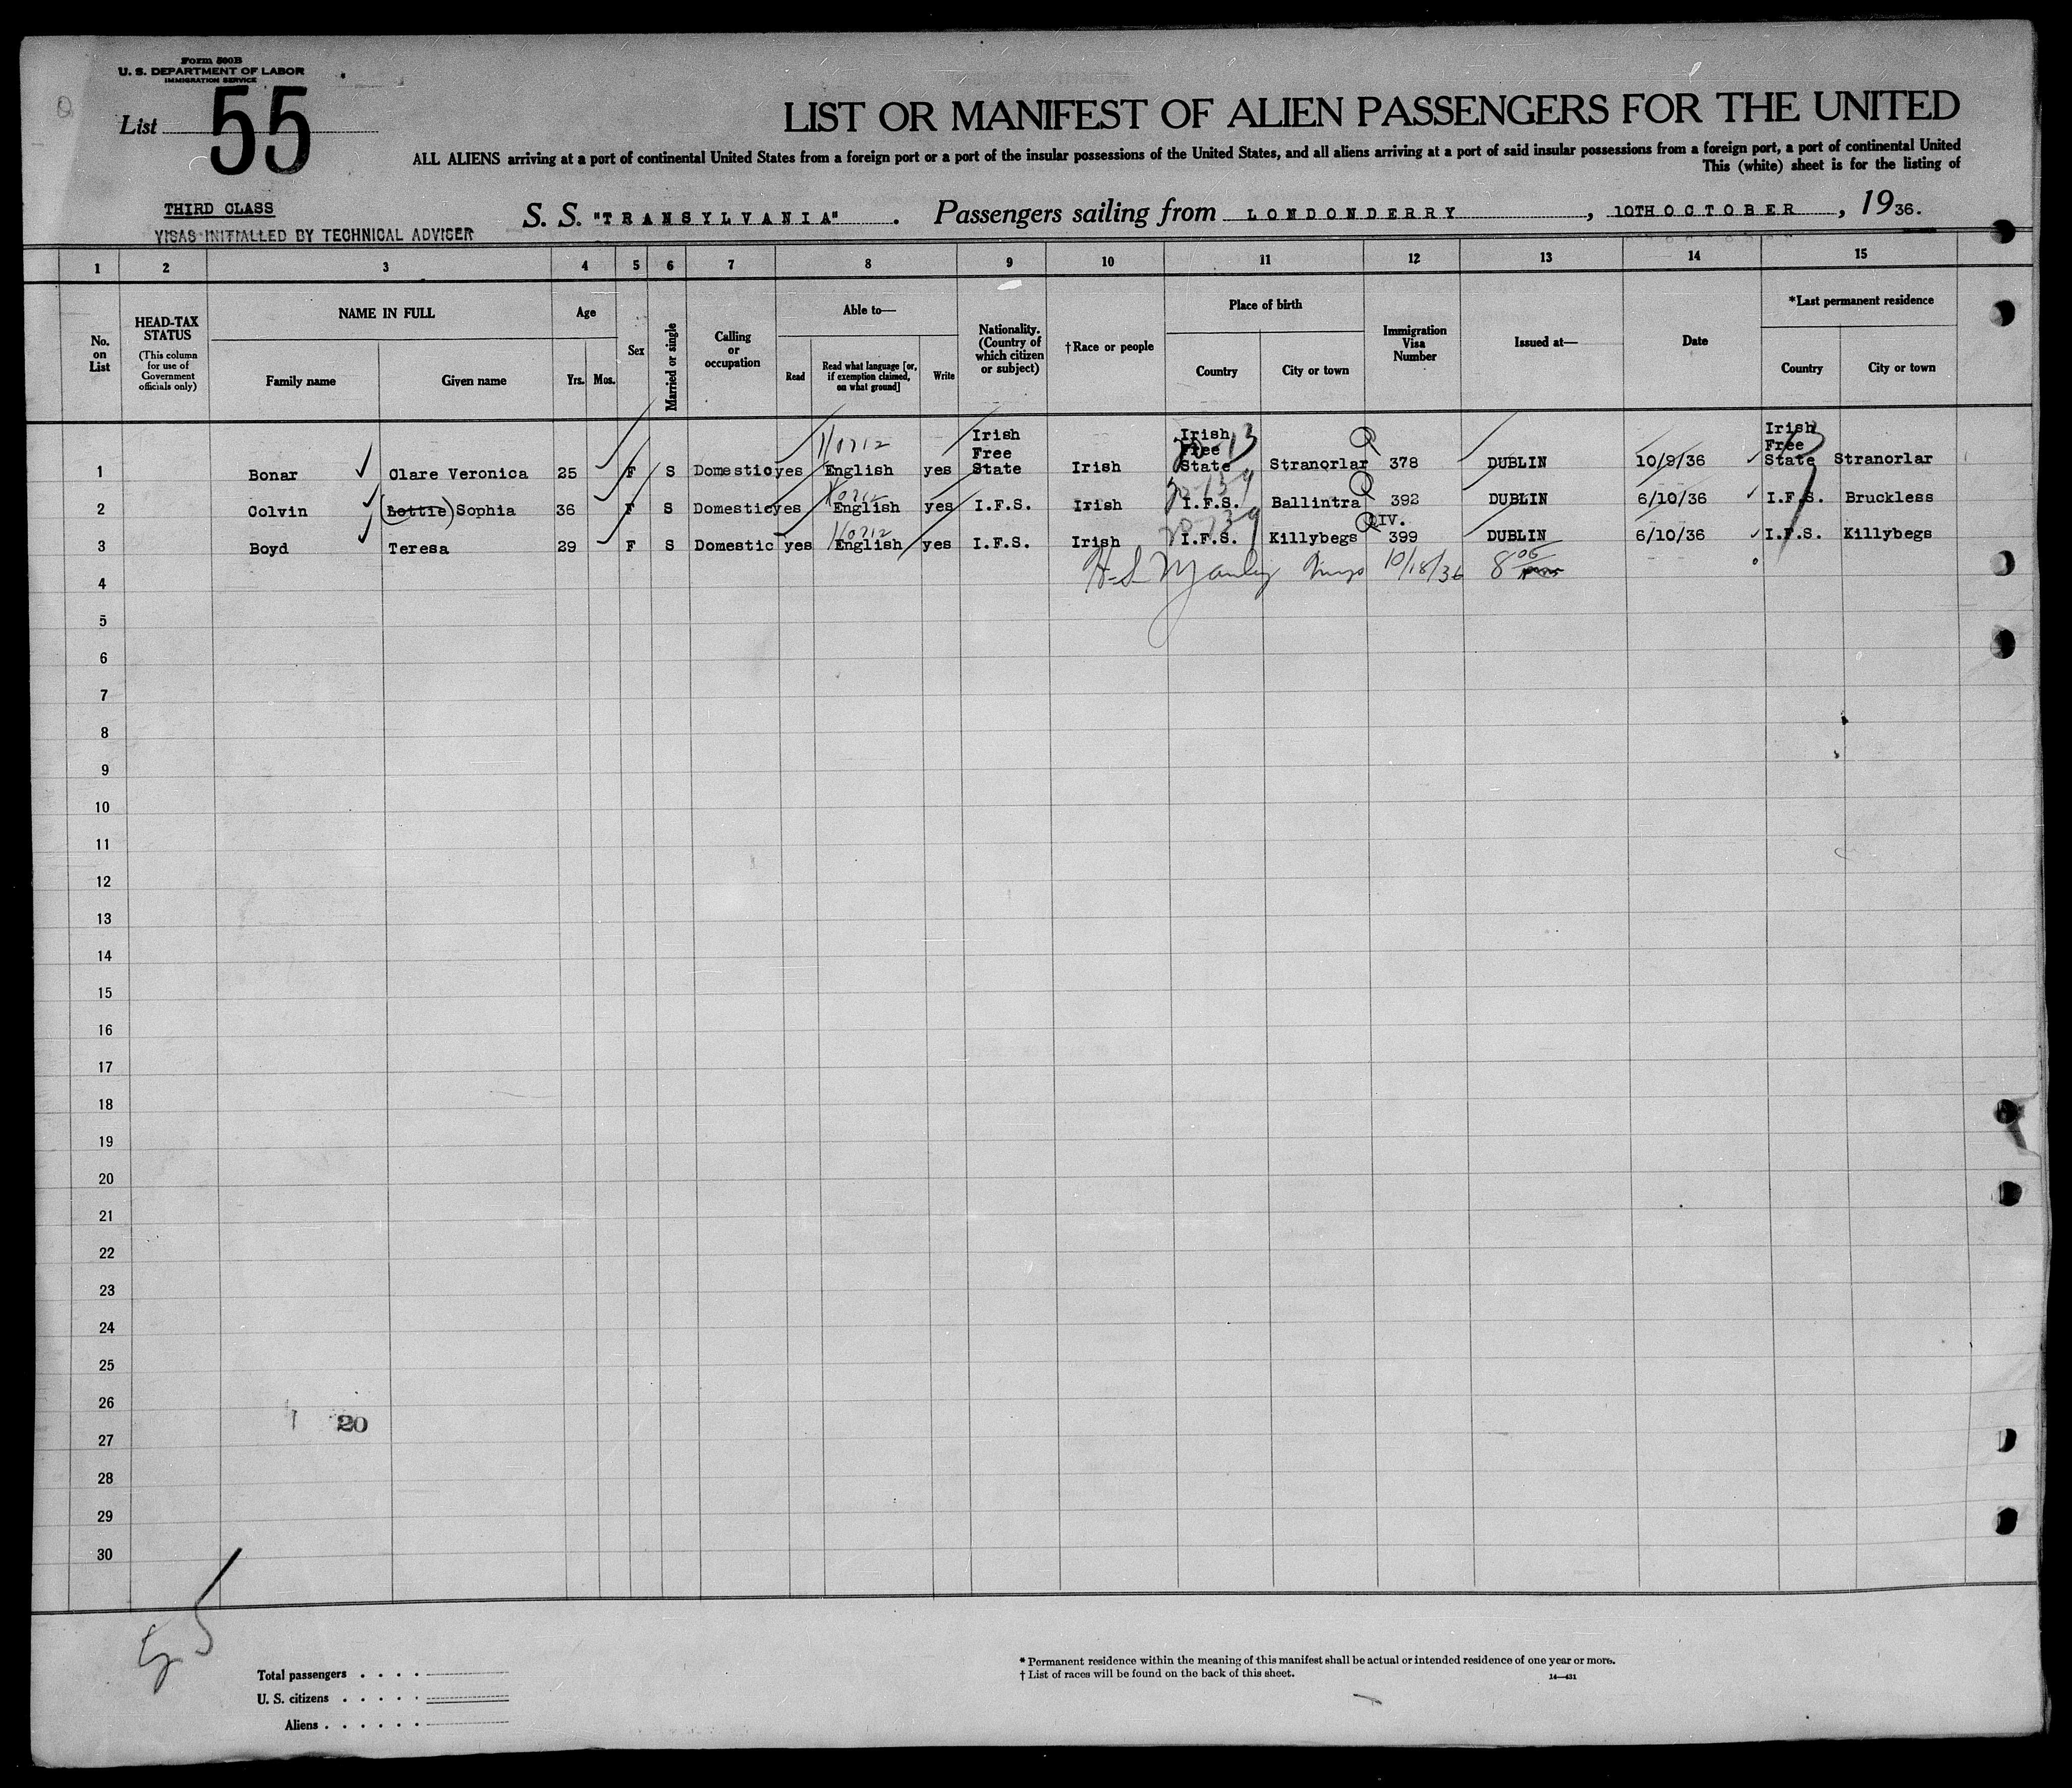 Form 500B
U. S. DEPARTMENT OF LABOR
IMMIGRATION SERVICE
List 55
LIST OR MANIFEST OF ALIEN PASSENGERS FOR THE UNITED
ALL ALIENS arriving at a port of continental United States from a foreign port or a port of the insular possessions of the United States, and all aliens arriving at a port of said insular possessions from a foreign port, a port of continental United
This (white) sheet is for the listing of
THIRD CLASS
VISAS INITIALLED BY TECHNICAL ADVISER
S. S. "TRANSYLVANIA" . Passengers sailing from LONDONDERRY , 10TH OCTOBER , 1936.
1 2 3 4 5 6 7 8 9 10 11 12 13 14 15
No. on List
HEAD-TAX STATUS
(This column for use of Government officials only)
NAME IN FULL
Family name Given name
Age
Yrs. Mos.
Sex
Married or single
Calling or occupation
Able to—
Read
Read what language [or, if exemption claimed, on what ground]
Write
Nationality. (Country of which citizen or subject)
†Race or people
Place of birth
Country City or town
Immigration Visa Number
Issued at—
Date
*Last permanent residence
Country City or town
1 Bonar Clare Veronica 25 F S Domestic yes English yes Irish Free State Irish Irish Free State Stranorlar 378 DUBLIN 10/9/36 Irish Free State Stranorlar
2 Colvin (Lottie) Sophia 36 F S Domestic yes English yes I.F.S. Irish I.F.S. Ballintra 392 DUBLIN 6/10/36 I.F.S. Bruckless
3 Boyd Teresa 29 F S Domestic yes English yes I.F.S. Irish I.F.S. Killybegs QIV. 399 DUBLIN 6/10/36 I.F.S. Killybegs
4 10/18/36
5
6
7
8
9
10
11
12
13
14
15
16
17
18
19
20
21
22
23
24
25
26
20
27
28
29
30
Total passengers . . . .
U. S. citizens . . . . .
Aliens . . . . . .
* Permanent residence within the meaning of this manifest shall be actual or intended residence of one year or more.
† List of races will be found on the back of this sheet.
14—431